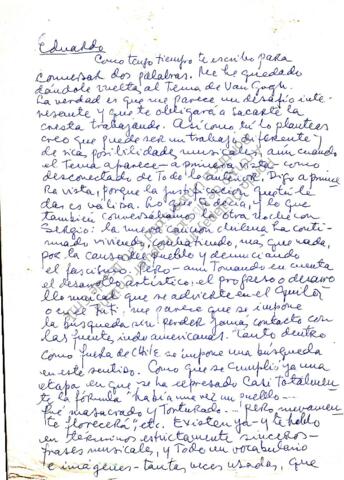 Eduardo
Como tengo tiempo te escribo para
conversar dos palabras. Me he quedado
dándole vuelta al Tema de Van Gogh.
La verdad es que me parece un desafío inte-
resante y que te obligará a sacarte la
cresta trabajando. Así como tú lo planteas
creo que puede ser un trabajo diferente y
de ricas posibilidades musicales, aún cuando
el Tema aparece a primera vista como
desconectado de Todo lo anterior. Digo a prime
ra vista, porque la justificación que tú le
das es válida. Lo que te decía, y lo que
también conversábamos la otra noche con
Sergio: la nueva canción chilena ha conti-
nuado viviendo, combatiendo, más que nada,
por la causa del pueblo y denunciando
el fascismo. Pero - aún Tomando en cuenta
el desarrollo artístico, el progreso o desarro
llo musical que se advierte en el Quila
o tu Inti, me parece que se impone
la búsqueda sin perder jamás contacto con
las fuentes indoamericanas. Tanto dentro
como fuera de Chile se impone una búsqueda
en este sentido. Como que se cumplió ya una
etapa en que se ha expresado casi Totalmen
te la fórmula "había una vez un pueblo -
fué masacrado y Torturado ... Pero nuevamen
te florecerá", etc. Existen ya - y te hablo
en términos estrictamente sinceros -
frases musicales, y Todo un vocabulario
e imágenes - tantas veces usadas, que